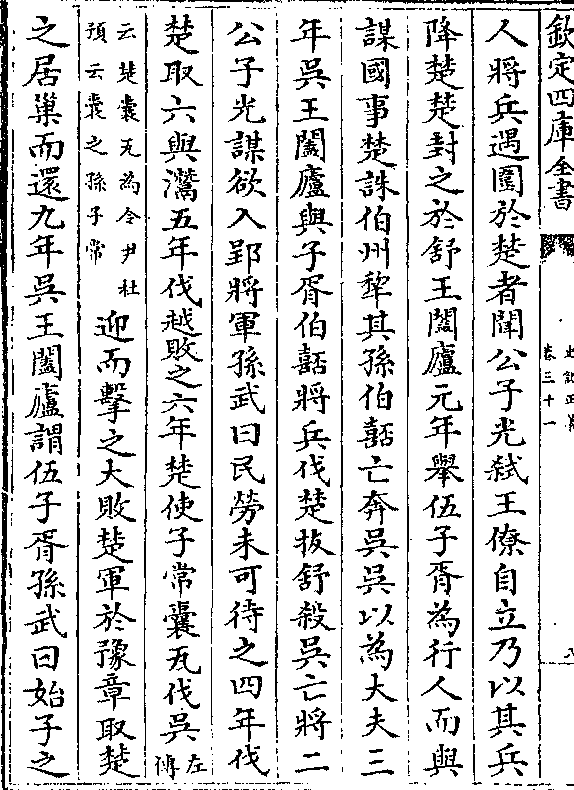 欽定四庫全書
卷三十一
人將兵遇圍於楚者聞公子光弑王僚自立乃以其兵
降楚楚封之於舒王闔廬元年舉伍子胥為行人而與
謀國事楚誅伯州犂其孫伯嚭亡奔吳吳以為大夫三
年吳王闔廬與子胥伯嚭將兵伐楚拔舒殺吳亡將二
公子光謀欲入郢將軍孫武曰民勞未可待之四年伐
楚取六與灊五年伐越敗之六年楚使子常囊瓦伐吳左傳
云楚囊瓦為令尹杜預云囊之孫子常迎而擊之大敗楚軍於豫章取楚
之居巢而還九年吳王闔廬謂伍子胥孫武曰始子之